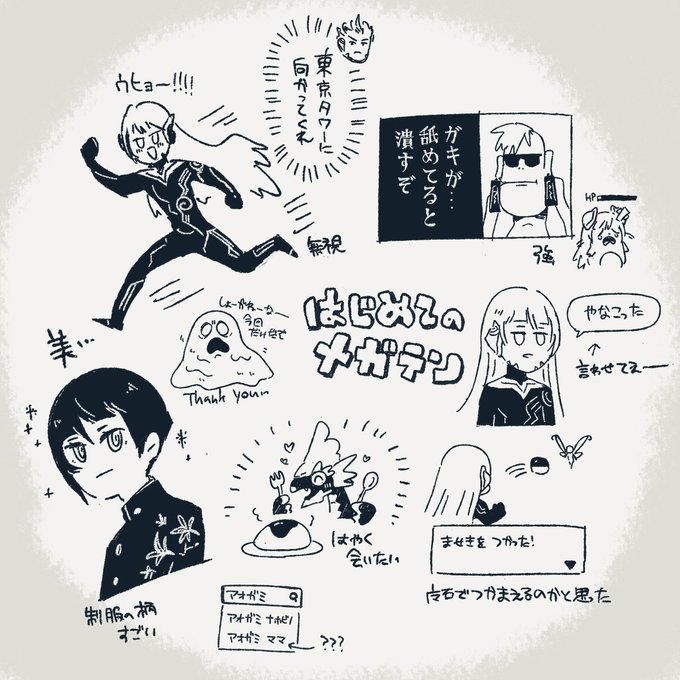 ウヒョー!!!!
東京タワーに
向かってくれ
無視
ガキが…
舐めてると
潰すぞ
HP
強
はじめての
メガテン
しょーがねーなー
今回
だけだぞ
Thank you~
やなこった
↑
言わせてえー
美…
制服の柄
すごい
はやく
会いたい
ませきを つかった!
石でつかまえるのかと思った
アオガミ
アオガミ ナホビノ
アオガミ ママ
← ???